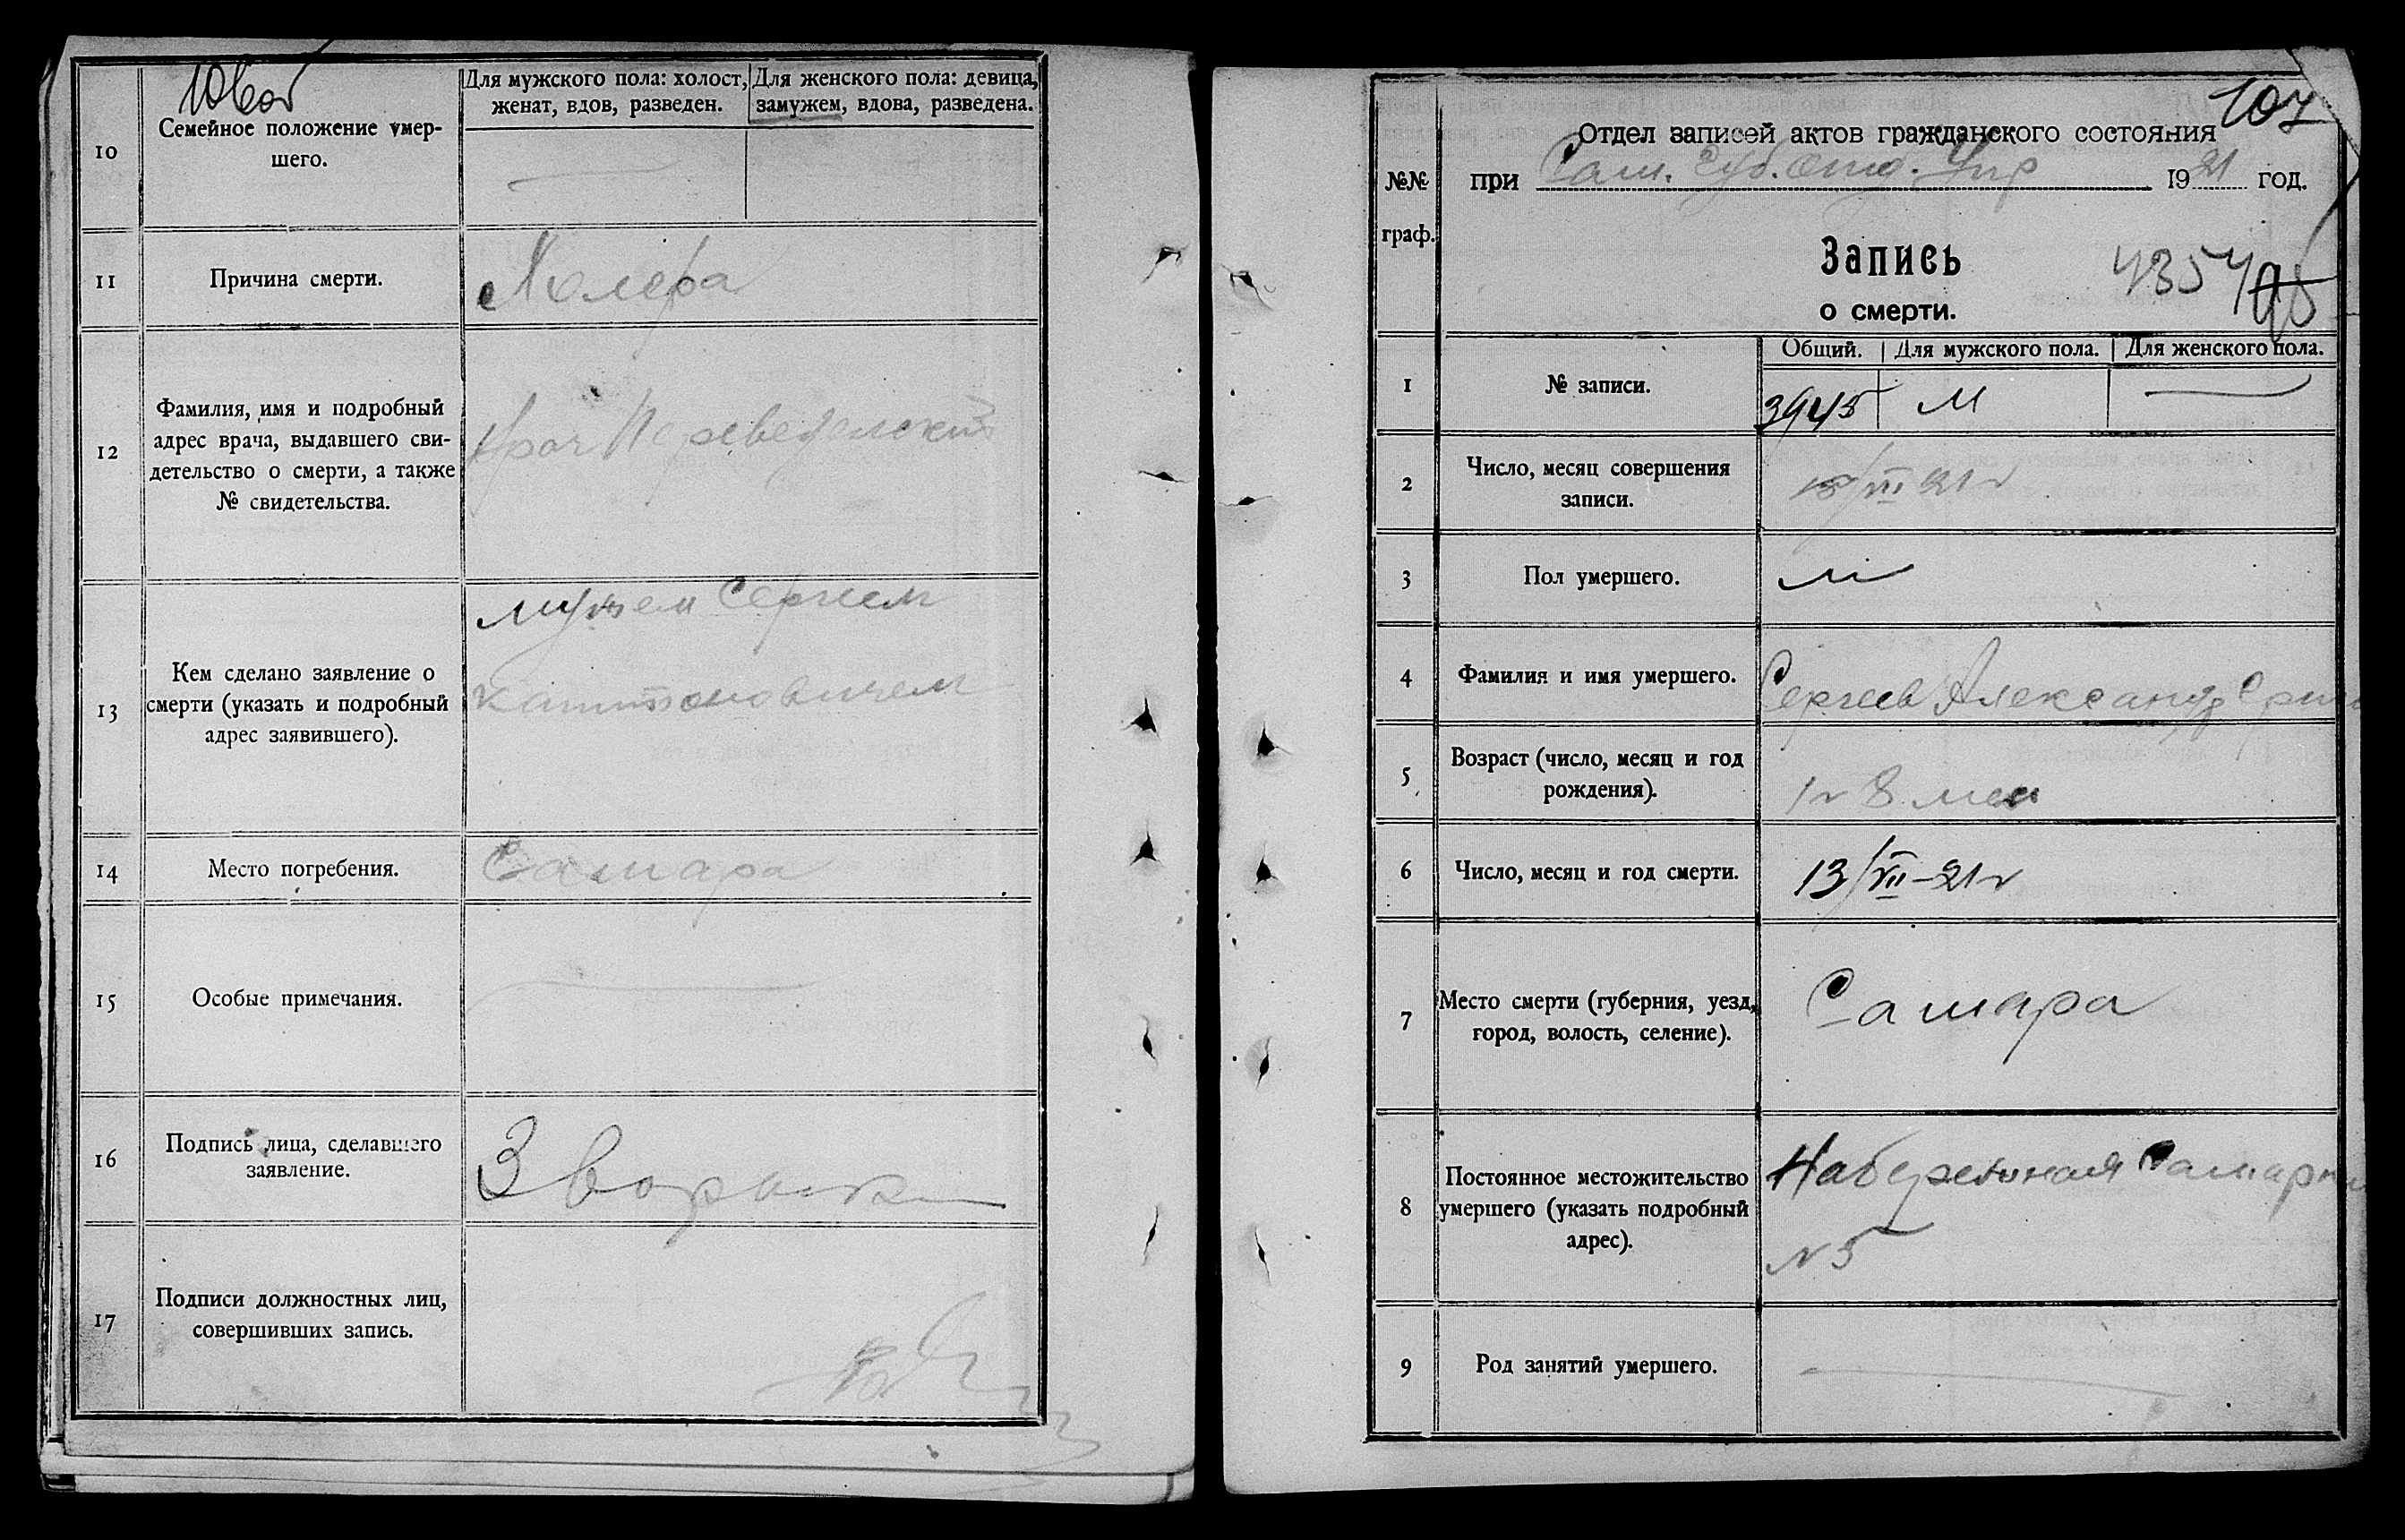 106об
10
Семейное положение умер-
шего.
Для мужского пола: холост,
женат, вдов, разведен.
Для женского пола: девица,
замужем, вдова, разведена.
11
Причина смерти.
Холера
12
Фамилия, имя и подробный
адрес врача, выдавшего сви-
детельство о смерти, а также
№ свидетельства.
Врач
13
Кем сделано заявление о
смерти (указать и подробный
адрес заявившего).
мужем Сергеем
Капитоновичем
14
Место погребения.
Самара
15
Особые примечания.
16
Подпись лица, сделавшего
заявление.
17
Подписи должностных лиц,
совершивших запись.
107
Отдел записей актов гражданского состояния
при Сам. Губ. Отд. Упр 1921 год.
№№
граф.
Запись
о смерти.
Общий. Для мужского пола. Для женского пола.
1
№ записи.
3945 М
2
Число, месяц совершения
записи.
15/VII 21 г
3
Пол умершего.
м
4
Фамилия и имя умершего.
Сергеев Александр
5
Возраст (число, месяц и год
рождения).
1 г 8 мес
6
Число, месяц и год смерти.
13/VII-21 г
7
Место смерти (губерния, уезд,
город, волость, селение).
Самара
8
Постоянное местожительство
умершего (указать подробный
адрес).
Набережная
№ 5
9
Род занятий умершего.